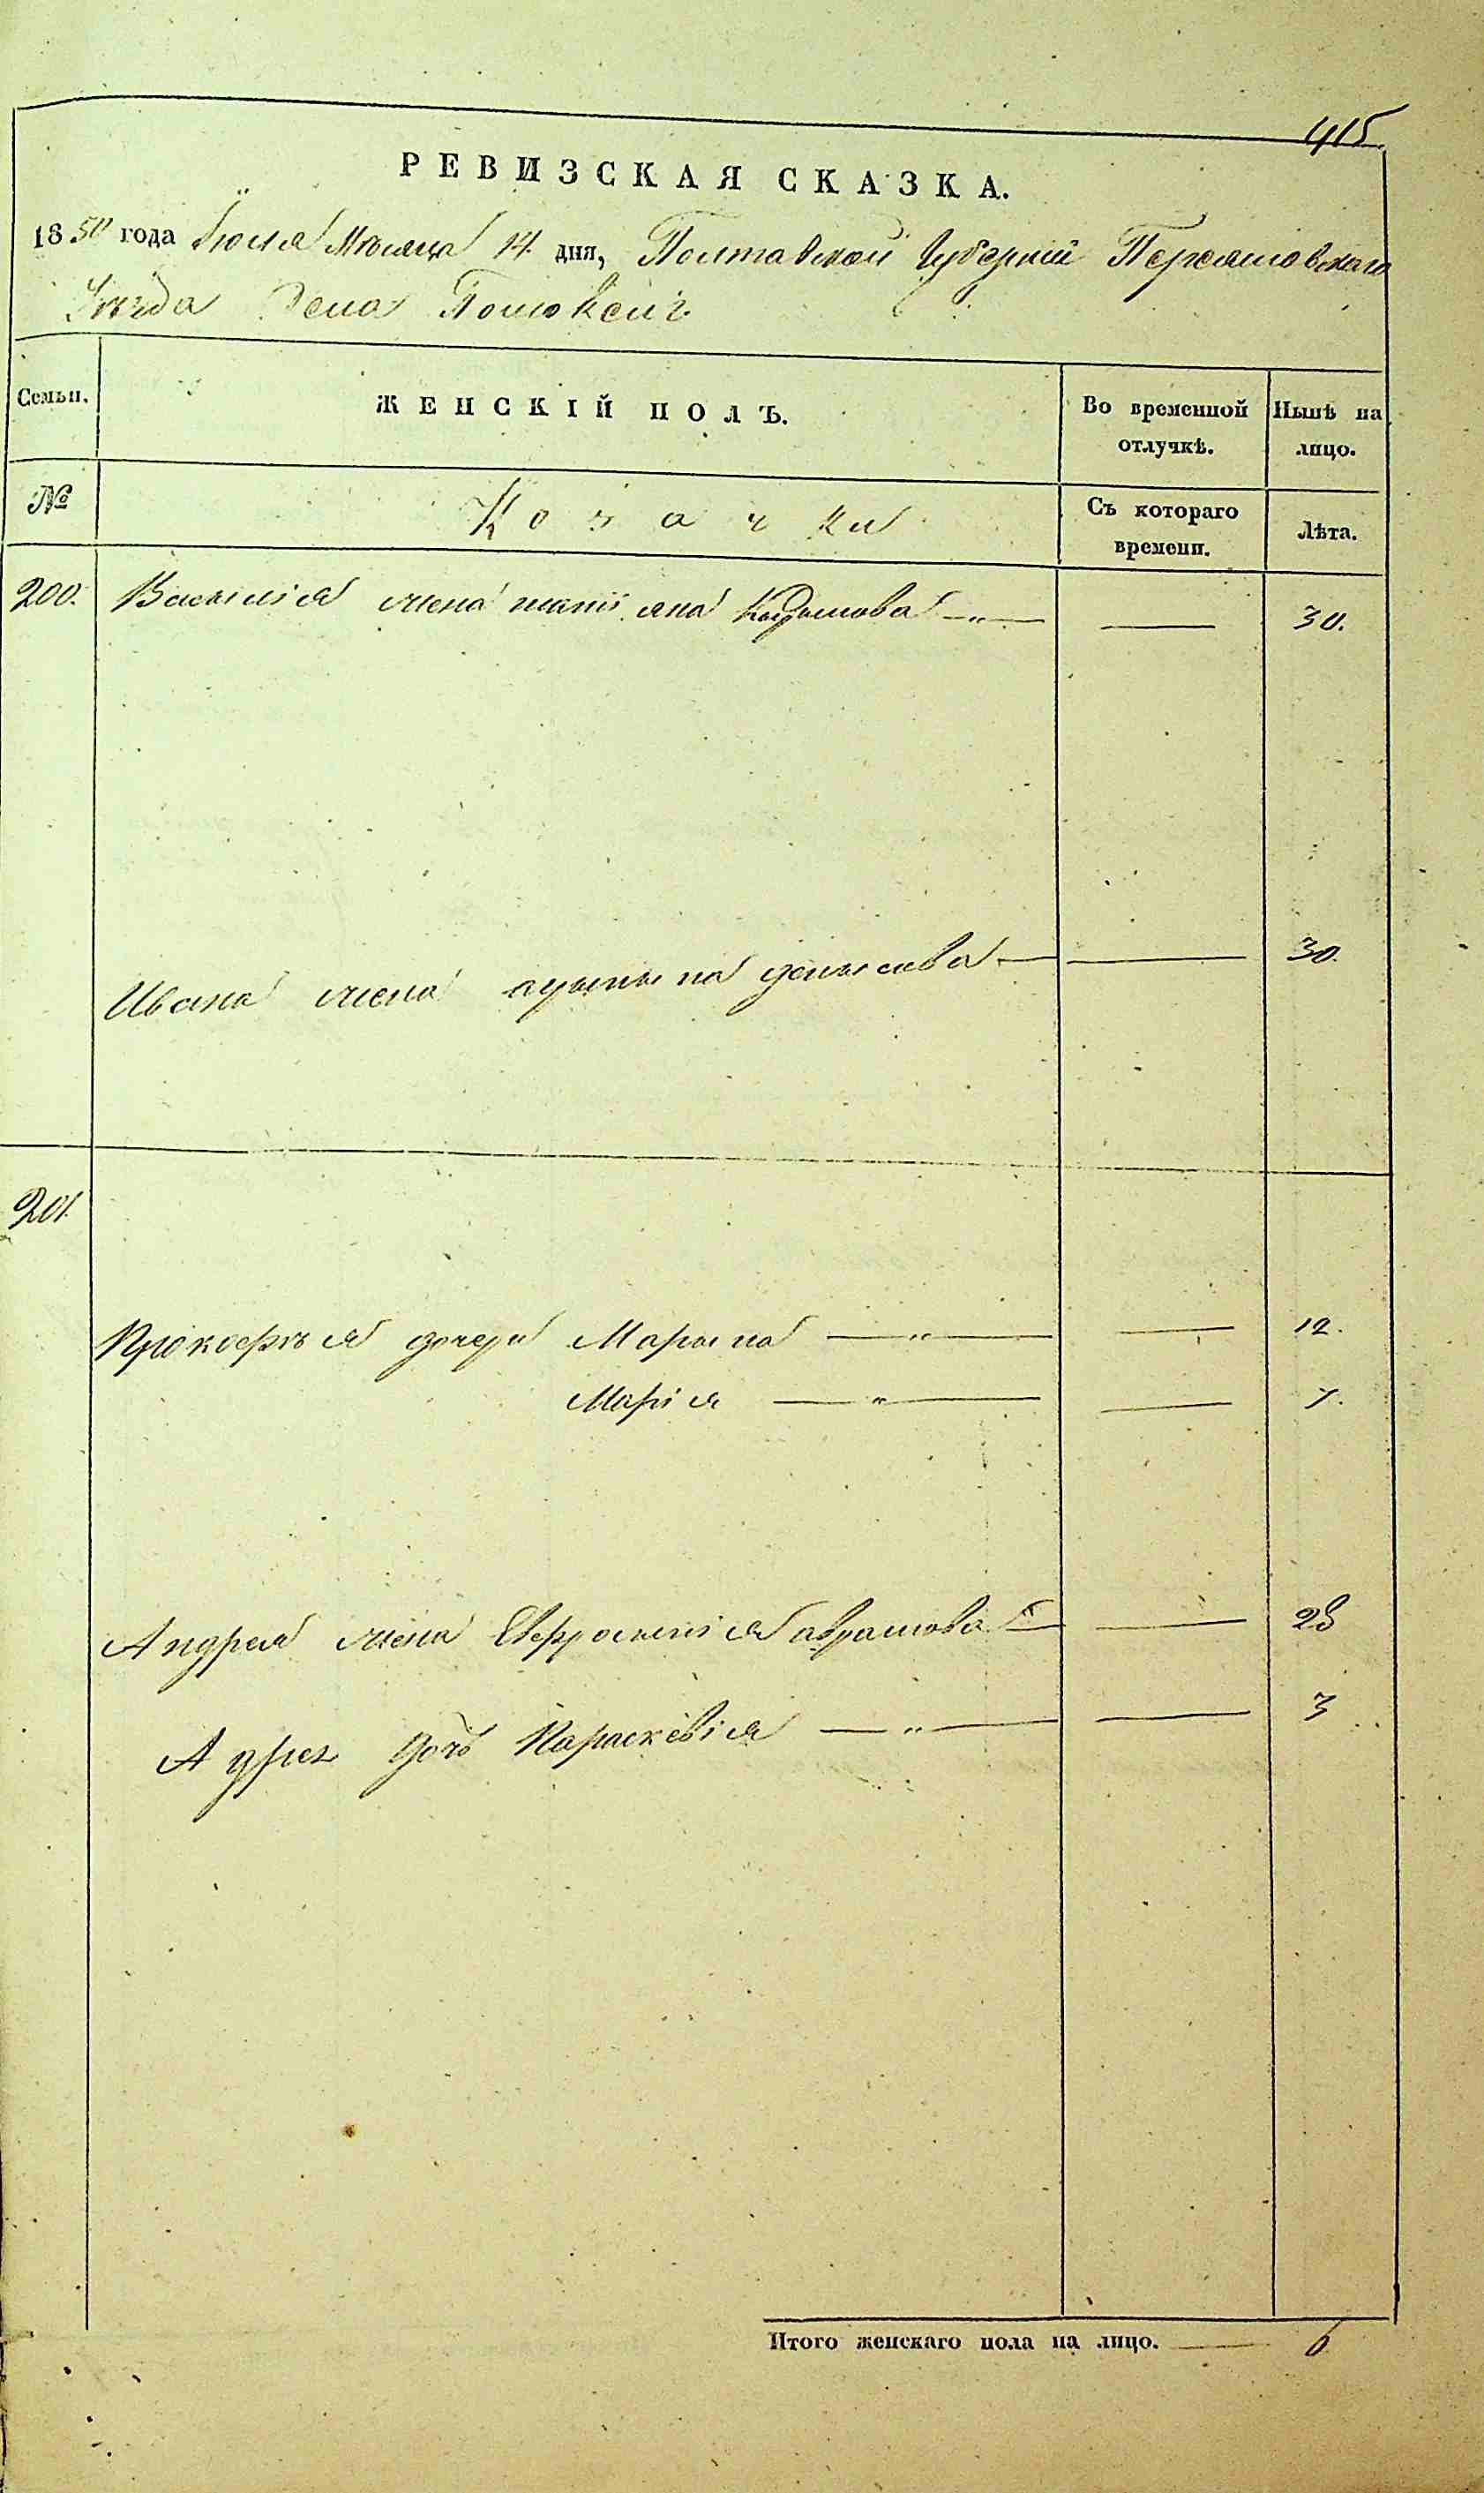 415
РЕВИЗСКАЯ СКАЗКА.
1850 года Іюля Мѣсяца 14 дня, Полтавской Губерніи Переяславскаго
Уѣзда Села
Семьи. ЖЕНСКІЙ ПОЛЪ. Во временной отлучкѣ. Нынѣ на лицо.
№ Козачки Съ котораго времени. Лѣта.
200. Василія жена 30.
Ивана жена 30.
201.
Прокофія дочери Марына 12.
Марія 7.
Андрея жена Евфросинія 28
Адрея дочь Параскевія 3
Итого женскаго пола на лицо. 6